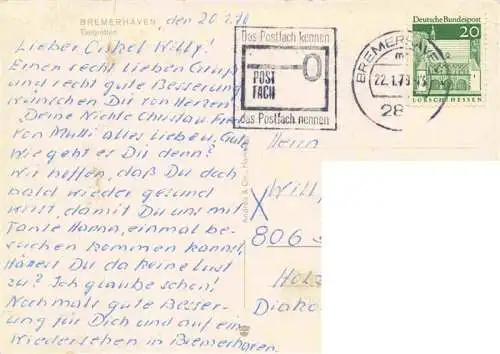 BREMERHAVEN, den 20.1.70
Tiergrotten
Lieber Onkel Willy!
Einen recht lieben Gruß
und recht gute Besserung
wünschen Dir von Herzen
Deine Nichte Christa u. Fred
von Mutti alles Lieben, Gute
wie geht es Dir denn?
wir hoffen, daß Du doch
bald wieder gesund
wirst, damit Du uns mit
Tante Hanna, einmal be-
suchen kommen kannst,
Hättest Du da keine Lust
zu? Ich glaube schon!
Nochmals gute Besser-
ung für Dich und auf ein
Wiedersehen in Bremerhaven.
Das Postfach kennen
POST
FACH
das Postfach nennen
BREMERHAVEN
22.1.70
28
Deutsche Bundespost
20
LORSCH/HESSEN
Andres & Co., Hamburg
Herrn
Will
X
806
Holz
Diako